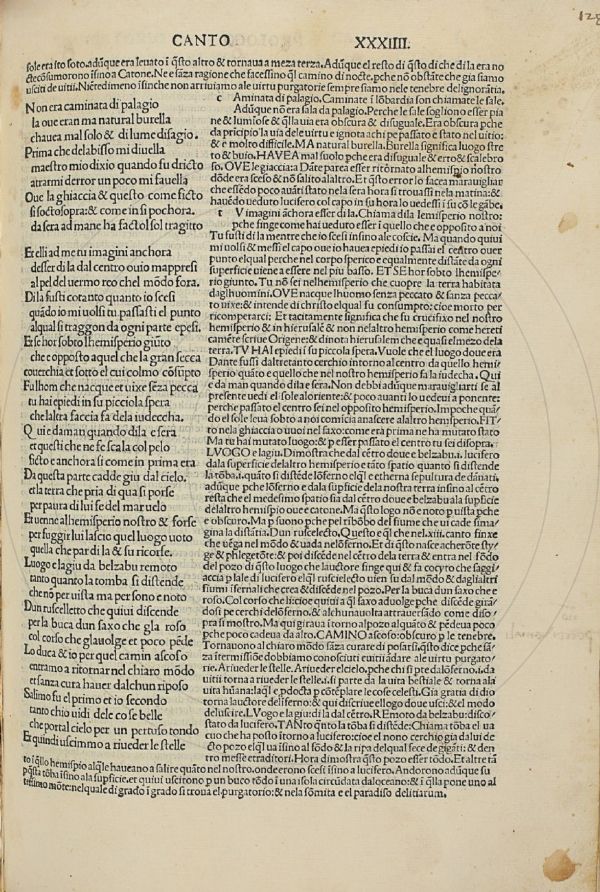 128
CANTO XXXIIII.
sole era ito soto. adũque era leuato ĩ q̃sto altro & tornaua a meza terza. Adũque el resto di q̃sto di che di la era no
cte cõsumorono ĩsino a Catone. Ne e sãza ragione che facessino q̃l camino di nocte. pche nõ obstãte che gia siamo
usciti de uitii. Niẽtedimeno ĩsinche non arriuiamo ale uirtu purgatorie sempre siamo nele tenebre delignorãtia.
Non era caminata di palagio
la oue eran ma natural burella
chauea mal solo & di lume disagio.
Prima che delabisso mi diuella
maestro mio dixio quando fu dricto
atrarmi derror un poco mi fauella
Oue la ghiaccia & questo come ficto
si soctosopra: & come in si pochora.
da sera ad mane ha factol sol tragitto
Et elli ad me tu imagini anchora
desser di la dal centro ouio mappresi
al pel del uermo reo chel mõdo fora.
Di la fusti cotanto quanto io scesi
quãdo io mi uolsi tu passasti el punto
alqual si traggon da ogni parte epesi.
Et se hor sobto lhemisperio giũto
che e opposito aquel che la gran secca
couerchia et sotto el cui colmo cõsũpto
Fu lhom che nacque et uixe sẽza pecca
tu hai epiedi in su picciola spera
che laltra faccia fa dela iudeccha.
Qui e da man quando di la e sera
et questi che ne fe scala col pelo
ficto e anchora si come in prima era
Da questa parte cadde giu dal cielo.
et la terra che pria di qua si porse
per paura di lui fe del mar uelo
Et uenne alhemisperio nostro & forse
per fuggir lui lascio quel luogo uoto
quella che par di la & su ricorse.
Luogo e lagiu da belzabu remoto
tanto quanto la tomba si distende
che nõ per uista ma per sono e noto
Dun ruscelletto che quiui discende
per la buca dun saxo che gla roso
col corso che gliauolge et poco pẽde
Lo duca & io per quel camin ascoso
entramo a ritornar nel chiaro mõdo
et sanza cura hauer dalchun riposo
Salimo su el primo et io secondo
tanto chio uidi dele cose belle
che portal cielo per un pertuso tondo
Et quindi uscimmo a riueder le stelle
c Aminata di palagio. Caminate ĩ lõbardia son chiamate le sale.
Adũque nõ era sala da palagio. Perche le sale sogliono esser pia
ne & lumiose & q̃lla uia era obscura & disuguale. Era obscura pche
da pricipio la uia dele uirtu e ignota achi pe passato e stato nel uitio:
& e molto difficile. MA natural burella. Burella significa luogo stre
to & buio. HAVEA mal suolo pche era disuguale & erto & scalebro
so. OVE le giaccia: a Dãte parea esser ritornato alhemisperio nostro
dõde era sceso & nõ salito alaltro. Et q̃sto error lo facea marauigliar
che essẽdo poco auãti stato nela sera hora si trouassi nela matina: &
hauẽdo ueduto lucifero col capo in su hora lo uedessi ĩ su cõ le gãbe.
t V imagini ãchora esser di la. Chiama di la lemisperio nostro:
pche finge come hai ueduto esser ĩ quello che e opposito a noi
Tu fusti di la mentre che io scesi insino ale coscie. Ma quando quiui
mi uolsi & messi el capo oue io hauea epiedi io passai el cẽtro ouer
punto el qual perche nel corpo sperico e equalmente distãte da ogni
superficie uiene a essere nel piu basso. ET SE hor sobto lhemispe
rio giunto. Tu nõ sei nelhemisperio che cuopre la terra habitata
daglhuomini. OVE nacque lhuomo senza peccato & sanza pecca/
to uixe: & intende di christo el qual fu consumpto: cioe morto per
ricomperarci: Et tacitamente significa che fu crucifixo nel nostro
hemisperio & in hierusalẽ & non nel altro hemisperio come hereti
camẽte scriue Origene: & dinota hierusalem che e quasi el mezo dela
terra. TV HAI epiedi ĩ su piccola spera. Vuole che el luogo doue era
Dante fussi dal tretanto cerchio intorno al centro da quello hemi/
sperio quãto e quello che nel nostro hemisperio fa la iudecha. Qui
e da man quando di la e sera. Non debbi adũque marauigliarti se al
presente uedi el sole aloriente: & poco auanti lo uedeui a ponente:
perche passato el centro sei nel opposito hemisperio. Impoche quã/
do el sole leua sobto a noi comĩcia anascere alaltro hemisperio. FIT/
to nela ghiaccia o uuoi nel saxo: come era prima ne ha mutato stato
Ma tu hai mutato luogo: & p esser passato el centro tu sei di sopra.
LVOGO e lagiu. Dimostra che dal cẽtro doue e belzabu .i. lucifero
da la superficie delaltro hemisperio e tãto spatio quanto si distende
la tõba .i. quãto si distẽde lõferno el q̃l e etherna sepultura de dãnati.
adũque pche lõferno e dala supficie dela nostra terra insino al cẽtro
resta che el medesimo spatio sia dal cẽtro doue e belzabu ala supficie
delaltro hemispio oue e catone. Ma q̃sto logo nõ e noto p uista pche
e obscuro. Ma p suono pche pel ribõbo del fiume che ui cade sima/
gina la distãtia. Dun ruscelecto. Questo e q̃l che nel .xiii. canto finxe
che uẽga nel mõdo & uada nelõferno. Et di q̃sto nasce acherõte sty/
ge & phlegetõte: & poi discẽde nel cẽtro dela terra & entra nel fõdo
del pozo di q̃sto luogo che lauctore finge qui & fa cocyto che saggi/
accia p lale di lucifero el q̃l ruscielecto uien su dal mõdo & dagli altri
fiumi ĩfernali che crea & discẽde nel pozo. Per la buca dun saxo che e
roso. Col corso che licioe quiui a q̃l saxo aduolge pche discẽde girã/
dosi pe cerchi delõferno. & alchuna uolta attrauersãdo come diso
pra si mostro. Ma qui giraua ĩtorno al pozo alquãto & pẽdeua poco
pche poco cadeua da alto. CAMINO ascoso: obscuro p le tenebre.
Tornauono al chiaro mõdo sãza curare di posarsi. q̃sto dice pche sã/
za ĩtermissiõe dobbiamo conosciuti e uitii ãdare ale uirtu purgato/
rie. Ariueder le stelle. Ariueder el cielo. pche chi si pte dalõferno .i. da
uitii torna a riueder le stelle .i. si parte da la uita bestiale & torna ala
uita hũana: laq̃l e pdocta p cõtẽplare le cose celesti. Gia gratia di dio
torna lauctore deliferno: & qui discriue el logo doue usci: & el modo
delusci re. LVOgo e la giu: di la dal cẽtro. REmoto da belzabu: disco/
stato da lucifero. TANto q̃nto la tõba si distẽde: Chiama tõba el ua
cuo che ha posto ĩtorno a lucifero: cioe el nono cerchio gia dal ui de/
cto pozo el q̃l ua ĩsino al fõdo & la ripa del qual fece de gigãti: & den
tro messe etraditori. Hora dimostra q̃sto pozo esser tõdo. Et altre tã
to ĩ q̃llo hemispio alq̃le haueano a salire quãto nel nostro. onde erono scesi ĩsino a lucifero. Andorono adũque su
p q̃sta tõba ĩsino ala supficie. et quiui uscirono p un buco tõdo ĩ una isola circũdata daloceano: & ĩ q̃lla pone uno al
tissimo mõte: nel quale di grado ĩ grado si troua el purgatorio: & nela sõmita e el paradiso delitiarum.